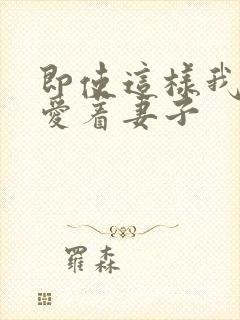 即使這樣我
愛着妻子
羅森